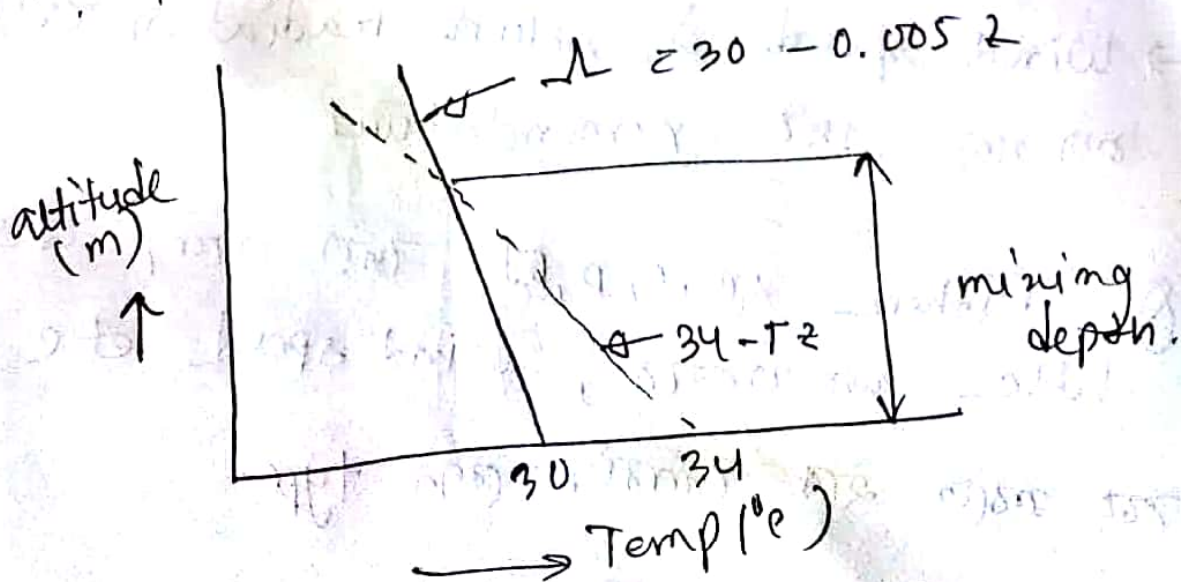 Λ = 30 - 0.005 z
altitude
(m)
34 - Γz
mixing
depth.
30
34
Temp (°c)